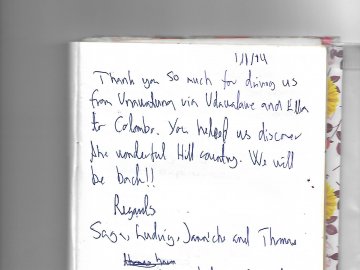 1/1/14
Thank you so much for driving us
from Unawatuna via Udawalawe and Ella
to Colombo. You helped us discover
the wonderful Hill country. We will
be back!!
Regards
Saga, Ludvig, Jannicke and Thomas